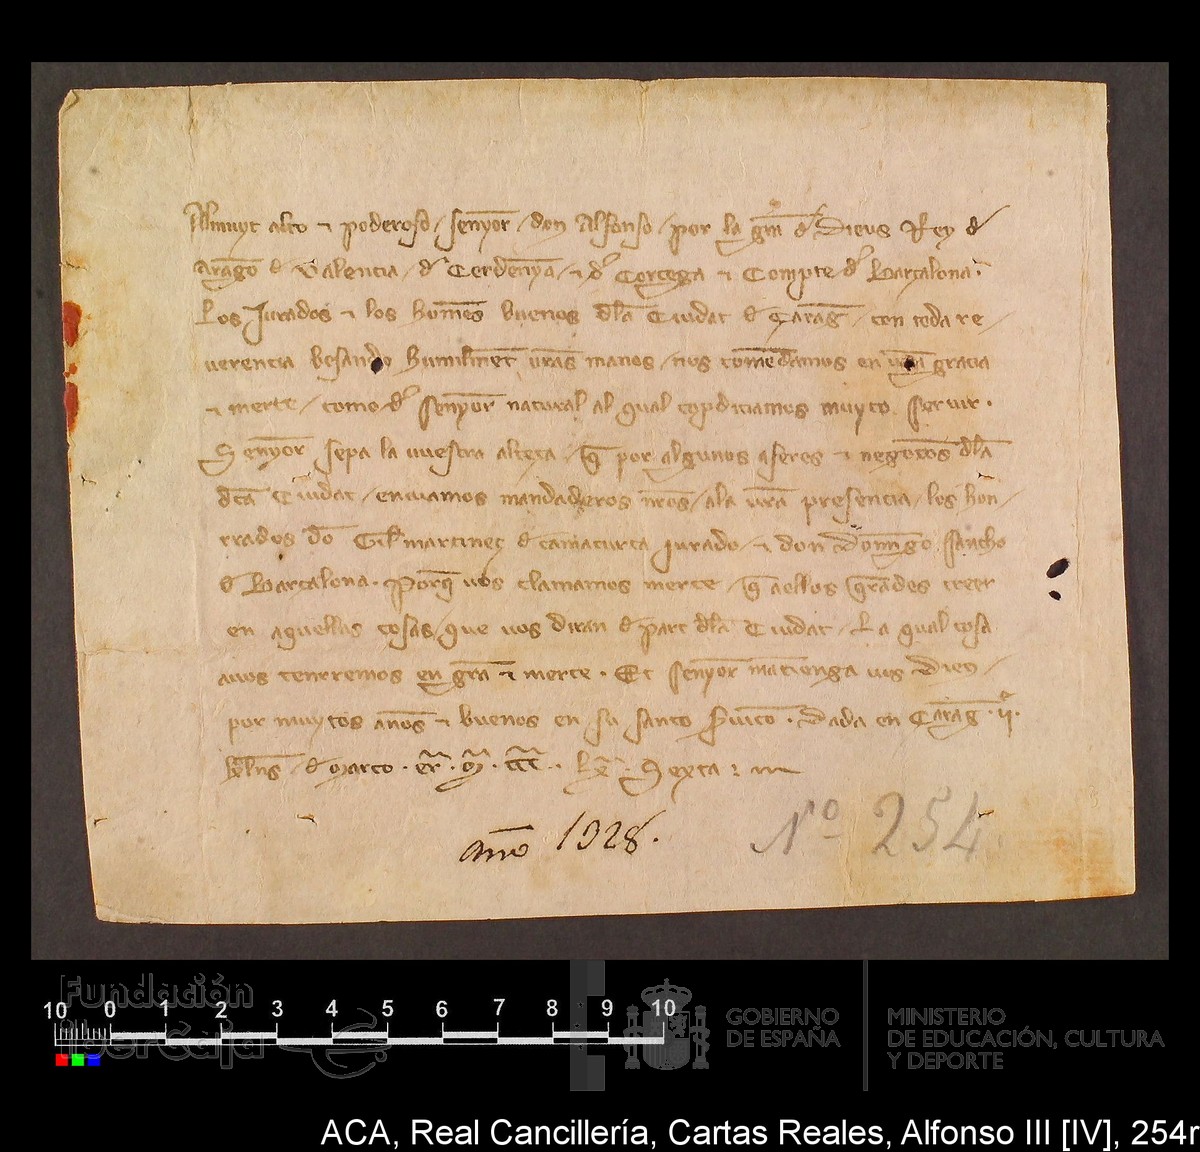 Al muyt alto ⁊ poderoso / senyor / don Alfonso / por la gra de Dieus Rey d
Aragon e Valencia / d Cerdenya / ⁊ d Corcega ⁊ Compte d Barçalona.
Los Jurados ⁊ los homes buenos dla Ciudat d Çarag / con toda re /
uerencia besando humilment uras manos / nos comendamos en ura gracia
⁊ merce / como d senyor natural al qual copdiciamos muyto seruir .
Senyor sepa la uuestra alteça / q por algunos aferes ⁊ negocios dla
dca Ciudat / enuiamos mandaderos nros / ala ura presencia / los hon /
rrados do Gil martineç d camacurta Jurado / ⁊ don Domingo sancho
d Barçalona . Porq uos clamamos merce / q aellos querades creer
en aquellas cosas / que uos diran d part dla Ciudat / La qual cosa
auos tenrremos en gra ⁊ merce . Et senyor mantienga uos Dieus /
por muytos anos ⁊ buenos en su santo seruicio . Dada en Çarag . ij .
klns / d Março . era . m . ccc . Lx . Sexta :
año 1328.
Nº 254
Fundación
iberCaja
10 0 1 2 3 4 5 6 7 8 9 10
GOBIERNO
DE ESPAÑA
MINISTERIO
DE EDUCACIÓN, CULTURA
Y DEPORTE
ACA, Real Cancillería, Cartas Reales, Alfonso III [IV], 254r